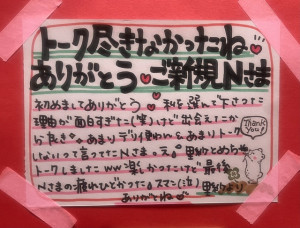 トーク尽きなかったね♥
ありがとう♥ご新規Nさま
初めましてありがとう♥ 私を選んで下さった
理由が面白すぎた(笑)けど出会えたこ
が良き。あまりデリ使わん&あまりトーク
しないって言ってたNさま。え。
トークしましたww 楽しかったけど最後
Nさまの疲れひどかった。スマン(泣)
より
ありがとね
Thank You!